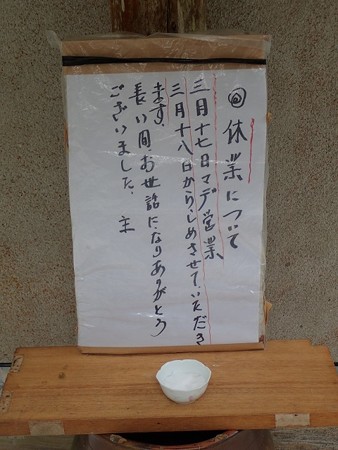 回休業について
三月十七日マデ営業
三月十八日から、しめさせて、いただき
ます。
長い間、お世話に、なりありがとう
ございました。 主